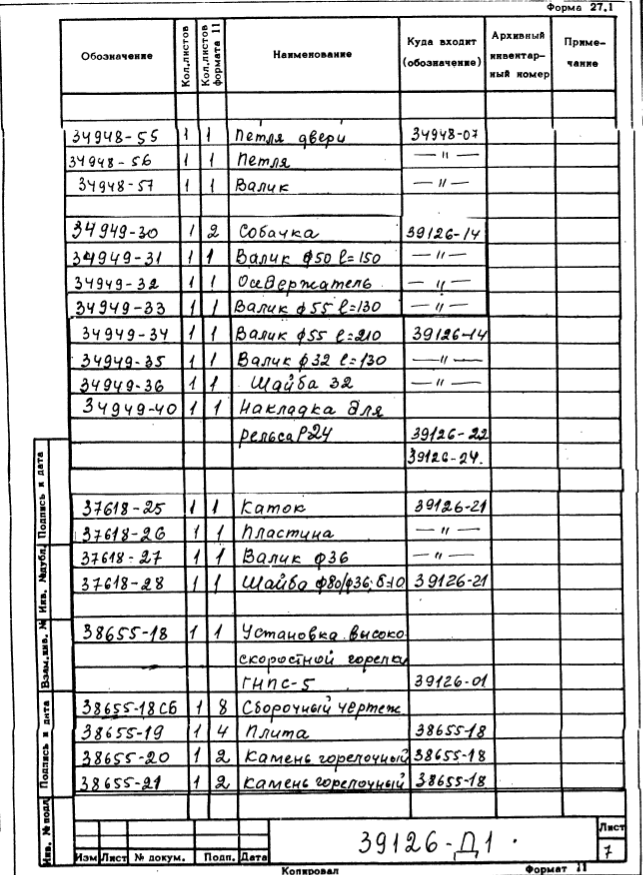 Форма 27.1
Обозначение Кол.листов Кол.листов формата 11 Наименование Куда входит (обозначение) Архивный инвентарный номер Примечание
34948-55 1 1 Петля двери 34948-07
34948-56 1 1 Петля — " —
34948-57 1 1 Валик — " —
34949-30 1 2 Собачка 39126-14
34949-31 1 1 Валик ϕ50 ℓ=150 — " —
34949-32 1 1 Оседержатель — " —
34949-33 1 1 Валик ϕ55 ℓ=130 — " —
34949-34 1 1 Валик ϕ55 ℓ=210 39126-14
34949-35 1 1 Валик ϕ32 ℓ=130 — " —
34949-36 1 1 Шайба 32 — " —
34949-40 1 1 Накладка для
рельса Р24 39126-22
39126-24.
37618-25 1 1 Каток 39126-21
37618-26 1 1 Пластина — " —
37618-27 1 1 Валик ϕ36 — " —
37618-28 1 1 Шайба ϕ80/ϕ36; δ=10 39126-21
38655-18 1 1 Установка высоко
скоростной горелки
ГНПС-5 39126-01
38655-18 СБ 1 8 Сборочный чертеж
38655-19 1 4 Плита 38655-18
38655-20 1 2 Камень горелочный 38655-18
38655-21 1 2 Камень горелочный 38655-18
Подпись и дата
Инв. №дубл.
Взам.инв. №
Подпись и дата
Инв. № подл
39126-Д1
Лист
7
Изм Лист № докум. Подп. Дата
Копировал Формат 11